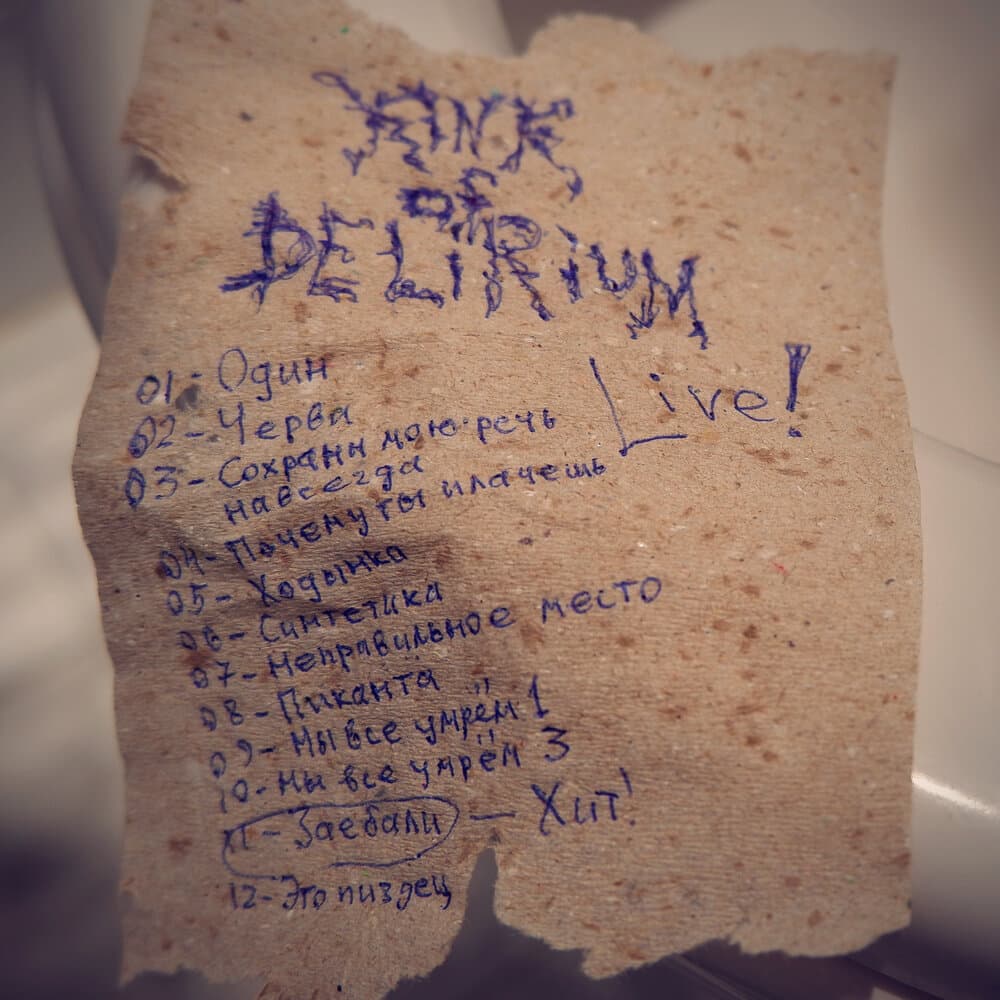 KINK
OF
DELiRiUM
Live!
01- Один
02- Черва
03- Сохрани мою речь
навсегда
04- Почему ты плачешь
05- Ходынка
06- Синтетика
07- Неправильное место
08- Пиканта
09- Мы все умрём 1
10- Мы все умрём 3
11- Заебали — Хит!
12- Это пиздец